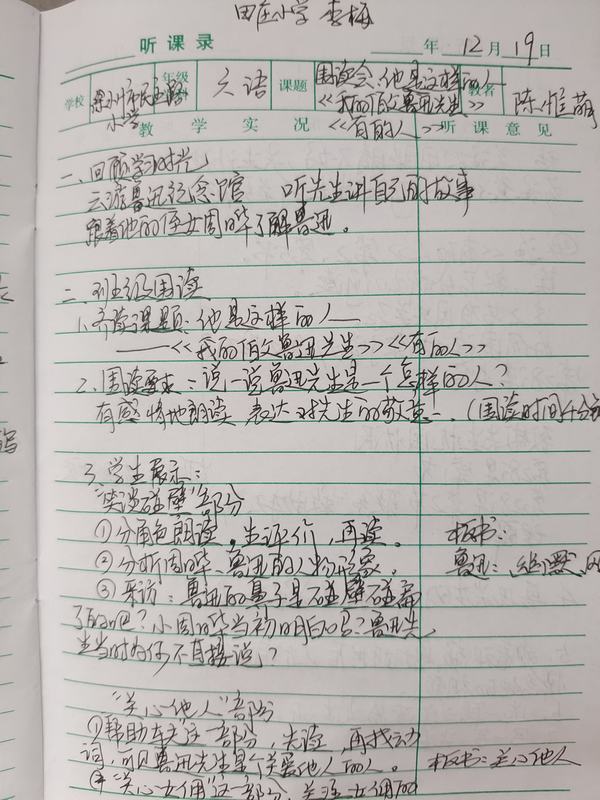 田庄小学 李梅
听课录
年 12月 19日
学校 市民主路小学 年级 六语 课题 围读会:他是这样的人——《我的伯父鲁迅先生》《有的人》 教者 陈惟萌
教学实况 听课意见
一、回顾学习时光
云游鲁迅纪念馆 听先生讲自己的故事
跟着他的侄女周晔了解鲁迅。
二、班级围读
1、齐读课题:他是这样的人——
——《我的伯父鲁迅先生》《有的人》
2、围读要求:说一说鲁迅先生是一个怎样的人?
有感情地朗读 表达对先生的敬意。(围读时间
3、学生展示:
"笑谈碰壁"部分
①分角色朗读。生评价,再读。 板书:
②分析周晔、鲁迅的人物形象。 鲁迅:幽默
③采访:鲁迅的鼻子是不是碰壁碰扁
了的吧?小周晔当初明白吗?鲁迅先
生当时为何不直接说?
"关心他人"部分
①帮助车夫这一部分,先读,再找动
词,可见鲁迅先生是个关爱他人的人。 板书:关心他人
②"关心女佣"这一部分,关注女佣的